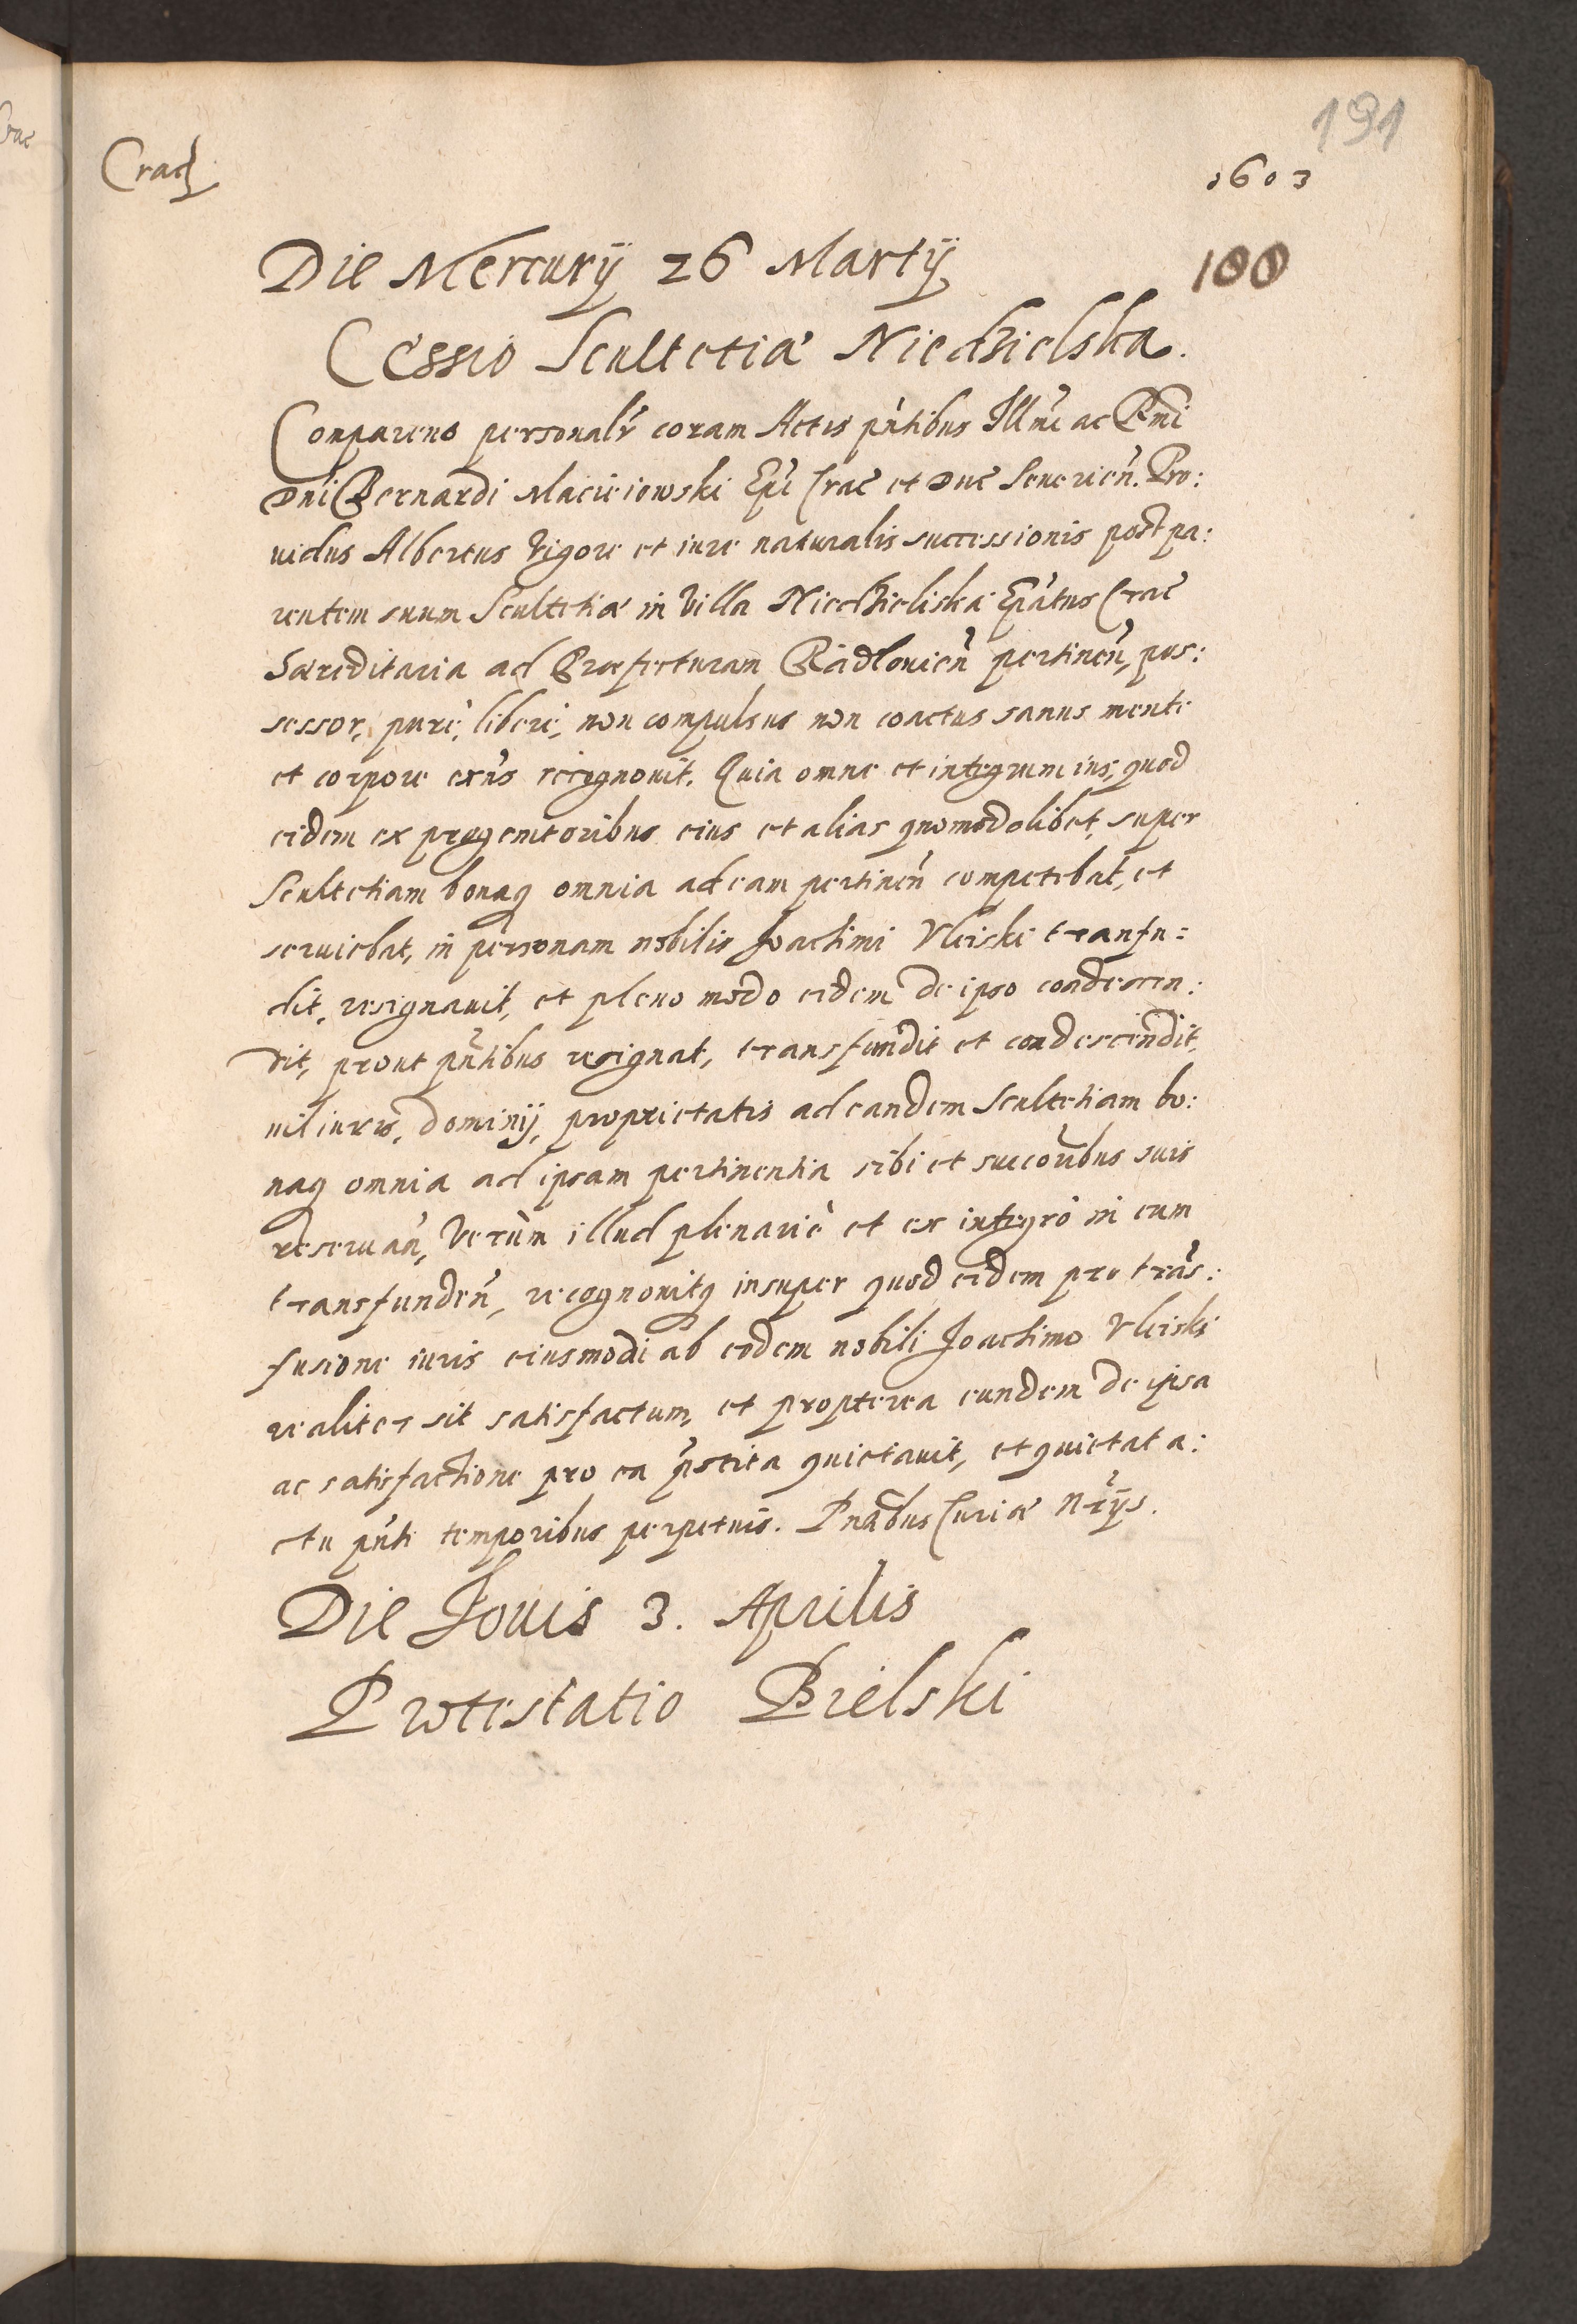 191
Crac
1603
Die Mercurÿ 26 Martÿ
100
Cessio Scultetiæ Niedzielska.
Comparens personalr coram Actis pntibus Illmi ac Rndi
Dni Bernardi Macieiowski Epi Crac et Duc Severien. Pro:
uidus Albertus vigore et iure naturalis successionis post pa:
rentem suum Scultetiæ in Villa Niedzieliska Epatus Crac
hæreditaria ad Præfecturam Radlouien pertinen, pos:
sessor, purè, liberè, non compulsus non coactus sanus mente
et corpore exns recognouit. Quia omne et integrum ius, quod
eidem ex progenitoribus eius et alias quomodolibet, super
Scultetiam bonaq omnia ad eam pertinen competebat, et
seruiebat, in personam nobilis Joachimi Vleiski tranfu=
dit, resignauit, et pleno modo eidem de ipso condescen:
dit, prout pntibus resignat, transfundit et condescendit,
nil iuris, dominÿ, proprietatis ad eandem Scultetiam bo:
naq omnia ad ipsam pertinentia sibi et succoribus suis
reseruan, Verùm illud plenariè et ex integro in eum
transfunden, recognouitq insuper quod eidem pro tras:
fusione iuris eiusmodi ab eodem nobili Joachimo Vleiski
realiter sit satisfactum, et propterea eundem de ipsa
ac satisfactione pro ea pstita quietauit, et quietat a:
ctu pnti temporibus perpetuis. Pntibus Curiæ Nrÿs.
Die Jouis 3. Aprilis
Protestatio Bielski